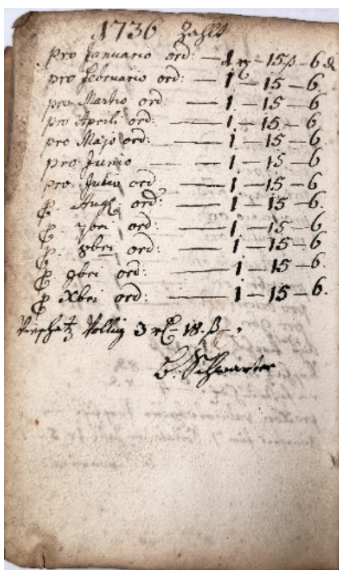 1736 Zahlt
pro Januario ord: — 1 — 15 ß — 6 d
pro Februario ord: — 1 — 15 — 6
pro Martio ord — 1 — 15 — 6
pro Aprili ord: — 1 — 15 — 6
pro Majo ord: — 1 — 15 — 6
pro Junio — 1 — 15 — 6
pro Julio ord — 1 — 15 — 6
p Augt ord: — 1 — 15 — 6
p 7bri ord: — 1 — 15 — 6
p 8bri ord: — 1 — 15 — 6
p 9bri ord: — 1 — 15 — 6
p Xbri ord: — 1 — 15 — 6.
Vollig 3 18. ß